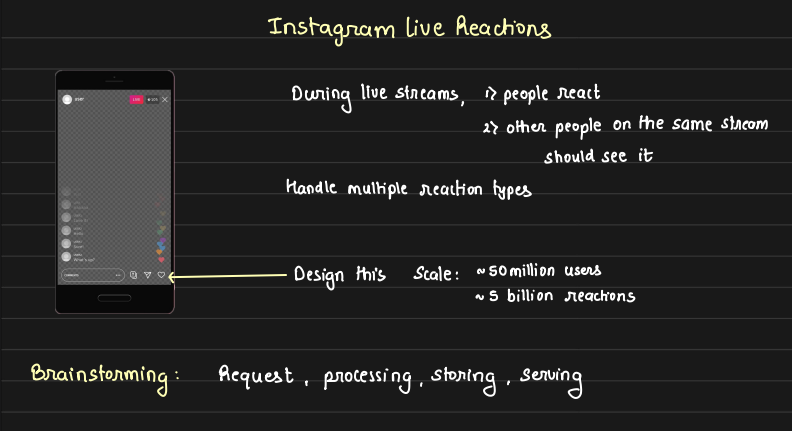 Instagram Live Reactions
During live streams, 1> people react
2> other people on the same stream
should see it
Handle multiple reaction types
Design this Scale: ~50 million users
~5 billion reactions
Brainstorming: Request, processing, storing, serving
user
LIVE
What's up?